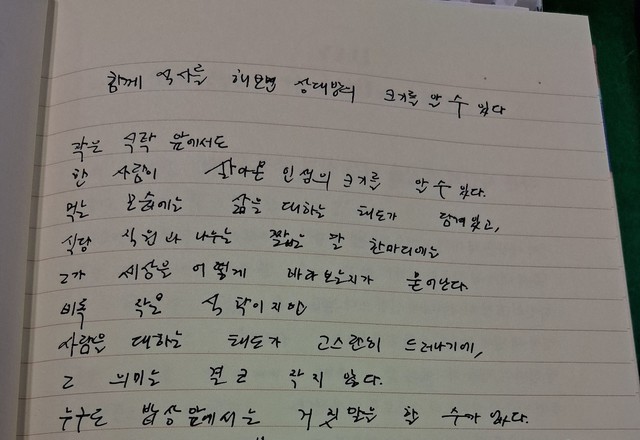 함께 식사를 해보면 상대방의 크기를 알 수 있다
작은 식탁 앞에서도
한 사람이 살아온 인생의 크기를 알 수 있다.
먹는 모습에는 삶을 대하는 태도가 담겨있고,
식당 직원과 나누는 짧은 말 한마디에는
그가 세상을 어떻게 바라보는지가 묻어난다
비록 작은 식탁이지만
사람을 대하는 태도가 고스란히 드러나기에,
그 의미는 결코 작지 않다.
누구든 밥상앞에서는 거짓말을 할 수가 없다.